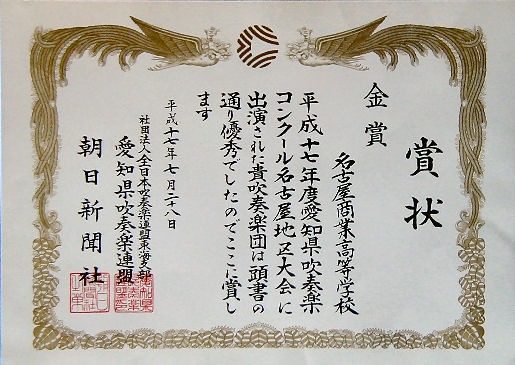 賞状
金賞
名古屋商業高等学校
平成十七年度愛知県吹奏楽
コンクール名古屋地区大会に
出演された貴吹奏楽団は頭書の
通り優秀でしたのでここに賞し
ます
平成十七年七月二十八日
社団法人全日本吹奏楽連盟東海支部
愛知県吹奏楽連盟
朝日新聞社